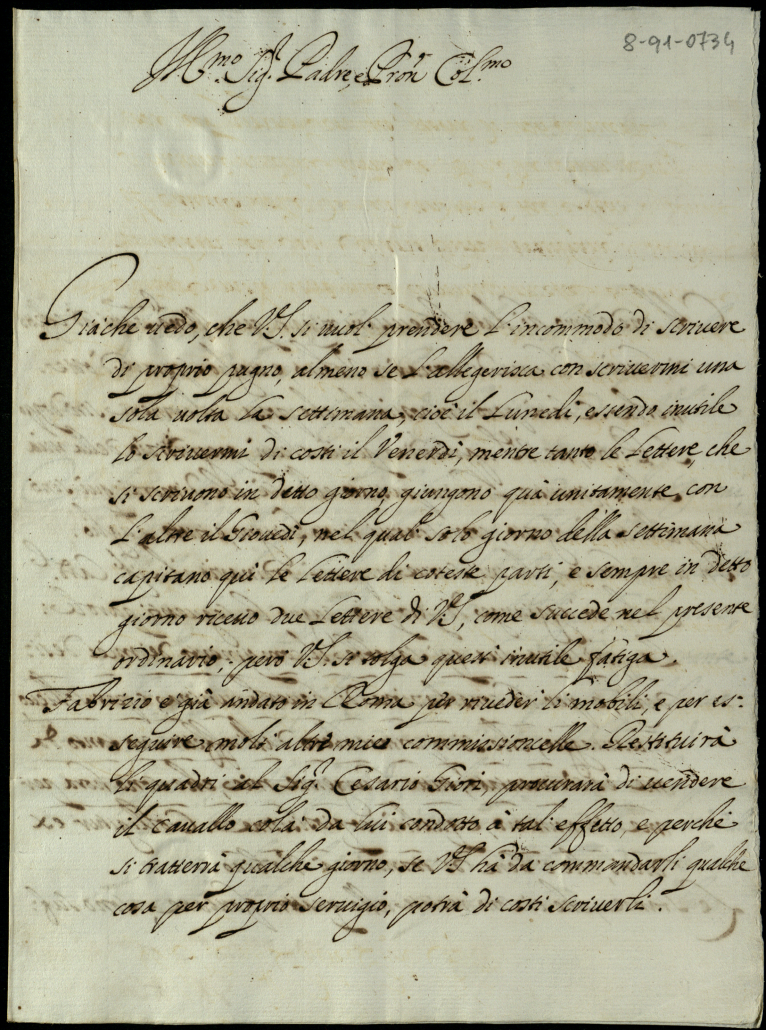 8-91-0734
Ill.mo Sig.r Padre, e Pron Col.mo
Giache uedo, che V.S. si uuol prendere l'incommodo di scriuere
di proprio pugno, almeno se l'allegerisca con scriuermi una
sola uolta la settimana, cioè il Lunedi, essendo inutile
lo scriuermi di costi il Venerdi, mentre tanto le Lettere, che
si scriuono in detto giorno giungono quà unitamente con
l'altre il Giouedi, nel qual solo giorno della settimana
capitano qui le Lettere di coteste parti, e sempre in detto
giorno riceuo due Lettere di V.S., come succede nel presente
ordinario, però V.S. si tolga quest'inutile fatiga.
Fabrizio e già andato in Roma per riueder li mobili, e per es=
seguire molt'altre mie commissioncelle. Restituirà
li quadri al Sig.r Cesario Giori, procurarà di uendere
il Cauallo colà da lui condotto à tal'effetto, e perche
si tratterrà qualche giorno, se V.S. hà da commandarli qualche
cosa per proprio seruigio, potrà di costi scriuerli.